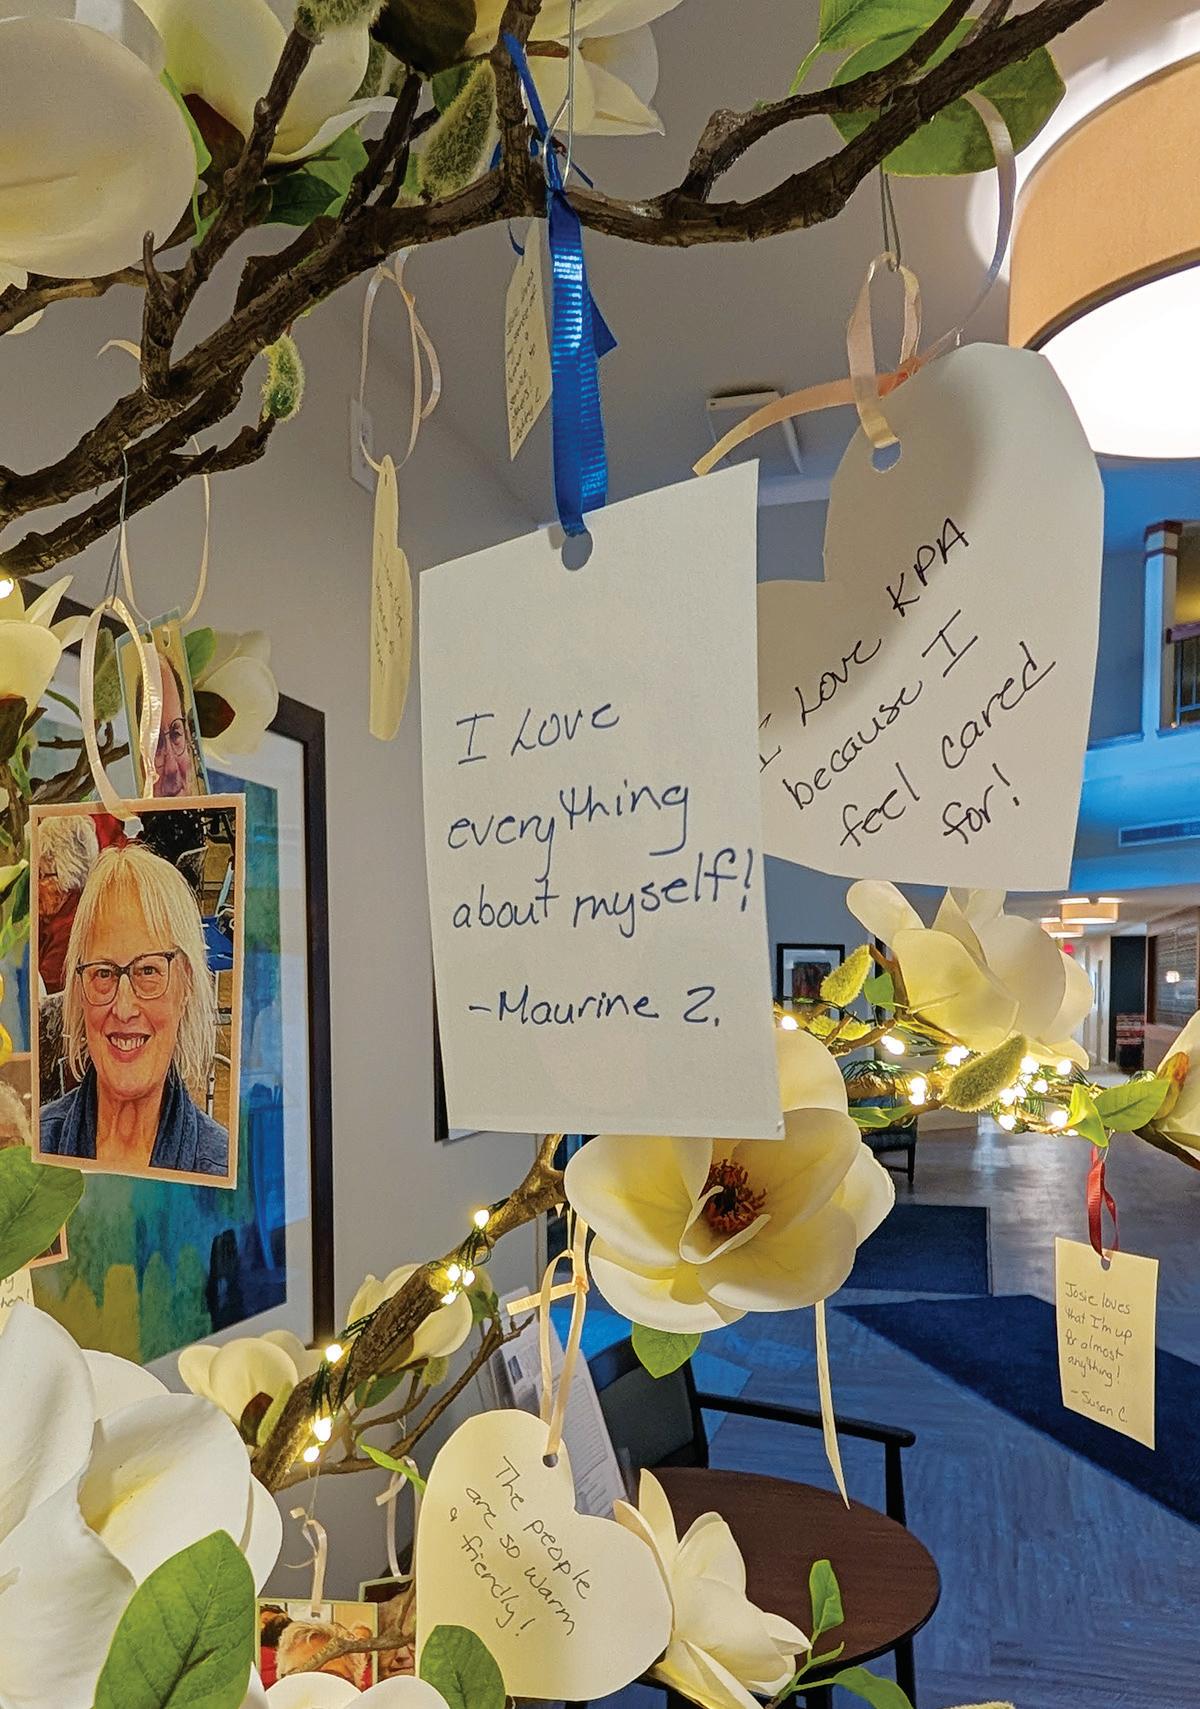 I Love
everything
about myself!
-Maurine Z.
I Love KPA
because I
feel cared
for!
Josie loves
that I'm up
for almost
anything!
-Susan C.
The people
are so warm
& friendly!